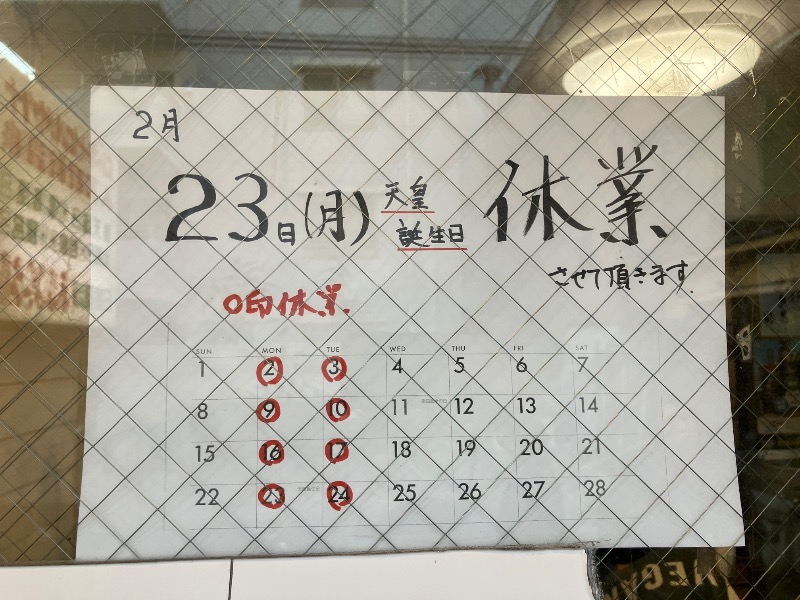 2月
23日(月) 天皇誕生日 休業
させて頂きます
○印休業
SUN MON TUE WED THU FRI SAT
1 2 3 4 5 6 7
8 9 10 11 12 13 14
15 16 17 18 19 20 21
22 23 24 25 26 27 28